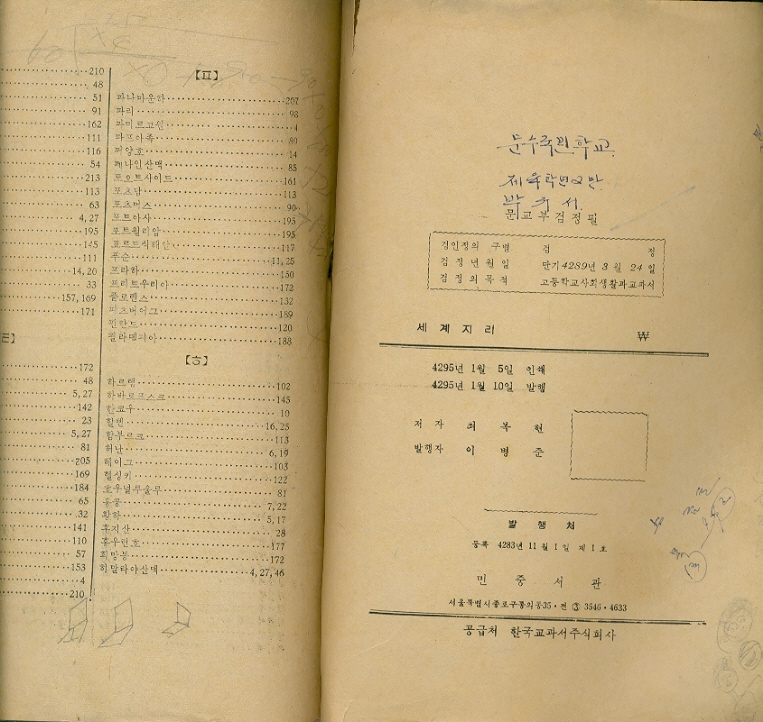 210
48
51
91
162
111
116
54
213
113
63
4,27
195
145
111
14,20
33
157,169
171
172
48
5,27
142
23
5,27
81
205
169
184
65
32
141
110
57
153
4
210
【ㅍ】
파나마운하 207
파리 98
파미르고원 4
80
14
85
포오트사이드 161
포츠담 113
90
포트아사 195
포트윌리암 195
117
푸순 11,25
프라하 150
프리토우리아 172
플로렌스 132
피츠버어그 189
핀란드 120
필라델피아 188
【ㅎ】
하르렘 102
하바로프스크 145
한코우 10
할빈 16,25
함부르크 113
허난 6,19
헤이그 103
헬싱키 122
호우널루울루 81
7,22
황하 5,17
후지산 28
후우런호 177
희망봉 172
히말라야산맥 4,27,46
문수국민학교
문교부검정필
검인정의 구별 검 정
검정년월일 단기 4289년 3월 24일
검정의목적 고등학교사회생활과교과서
세계지리 ₩
4295년 1월 5일 인쇄
4295년 1월 10일 발행
저자 최 복 현
발행자 이 병 준
발행처
등록 4283년 11월 1일 제1호
민중서관
서울특별시종로구통의동35·전 ③ 3546·4633
공급처 한국교과서주식회사